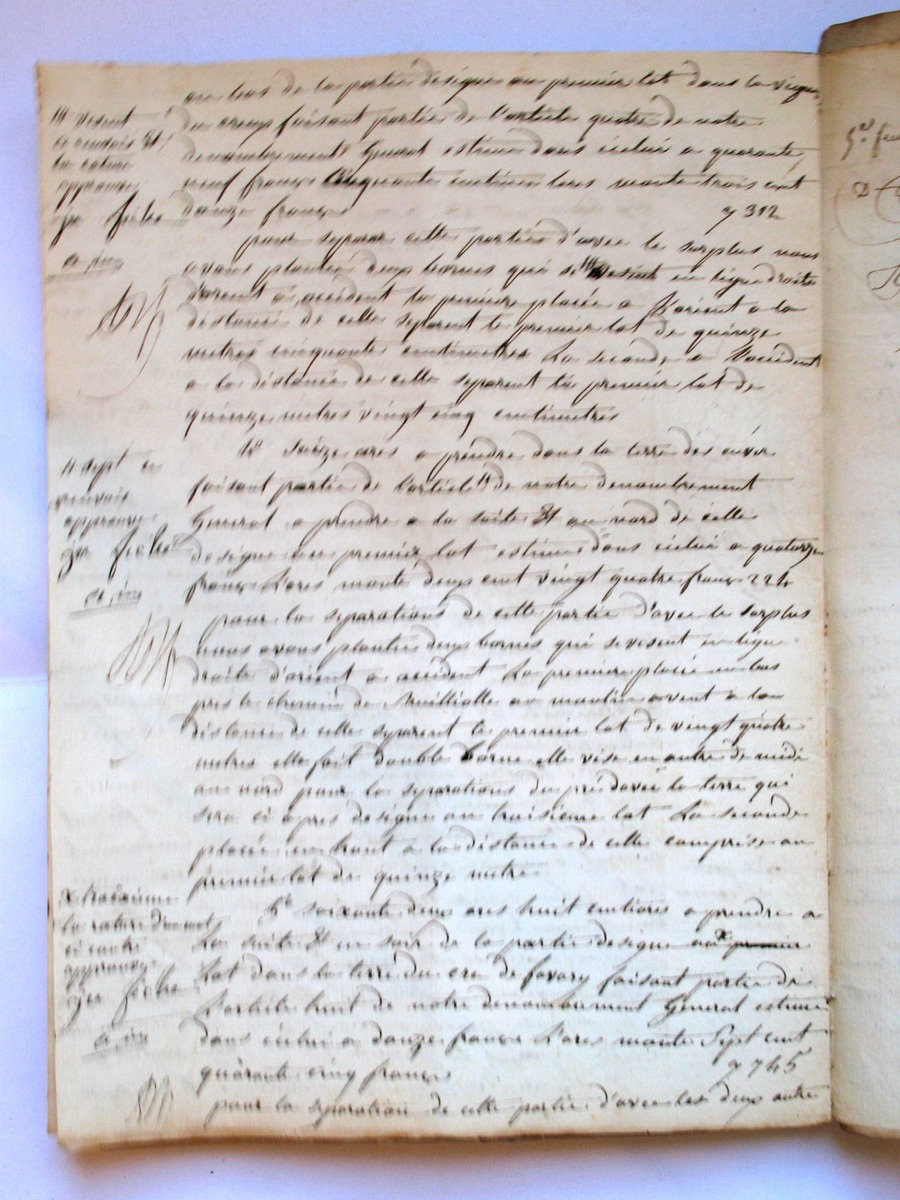 au bas de la partie designe au premier lot dans la vigne
du creux faisant partie de l'article quatre de notre
denombrement General estimé dans icelui a quarante
neuf francs Cinquante centimes lares monte trois cent
douze francs 312
pour separer cette partie d'avec le surplus nous
avons plantée deux bornes qui se visent en ligne droite
d'orient a occident la première placée a l'orient a la
distance de celle separent le premier lot de quinze
metres cinquante centimetres La seconde a l'occident
a la distance de celle separent le premier lot de
quinze metres vingt cinq centimetres
4º Seize ares a prendre dans la terre des
faisant partie de l'article de notre denombrement
General a prendre a la suite Et au nord de celle
designe au premier lot estimé dans icelui a quatorze
francs L'ares monte deux cent vingt quatre francs 224
pour la separations de cette partie d'avec le surplus
nous avons plantée deux bornes qui se visent en ligne
droite d'orient a occident La premier placée en bas
pres le chemin de au moulin a vent a la
distance de celle separent le premier lot de vingt quatre
metres elle fait double borne elle vise en outre de midi
au nord pour la separations du pré d'avec la terre qui
sera ci apres designe au troisieme lot La seconde
placée en haut a la distance de celle comprise au
premier lot de quinze metre
5º soixante deux ares huit centiares a prendre a
La suite Et en soir de la partie designe au x premier
Lot dans la terre du cra de favary faisant partie de
L'article huit de notre denombrement General estimé
dans icelui a douze francs L'ares monte Sept cent
quarante cinq francs 745
pour la separation de cette partie d'avec les deux autre
visent
ce renvois Et
la rature
approuvé
sept en
renvois
approuvé
x troisieme
la rature d'un mot
ci contre
approuvé